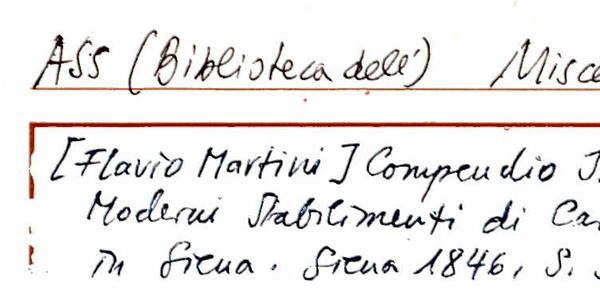 ASS (Biblioteca dell') Misce
[Flavio Martini] Compendio
Moderni Stabilimenti di Ca
in Siena. Siena 1846, S.